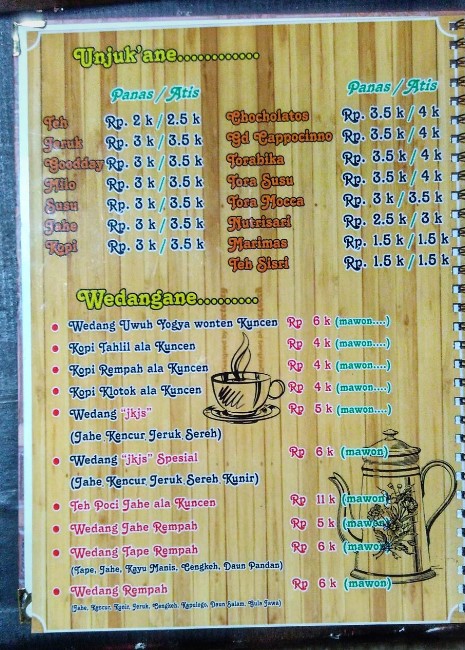 Unjuk'ane............
Panas / Atis
Teh Rp. 2 k / 2.5 k
Jeruk Rp. 3 k / 3.5 k
Goodday Rp. 3 k / 3.5 k
Milo Rp. 3 k / 3.5 k
Susu Rp. 3 k / 3.5 k
Jahe Rp. 3 k / 3.5 k
Kopi Rp. 3 k / 3.5 k
Panas / Atis
Chocholatos Rp. 3.5 k / 4 k
Gd Cappocinno Rp. 3.5 k / 4 k
Torabika Rp. 3.5 k / 4 k
Tora Susu Rp. 3.5 k / 4 k
Tora Mocca Rp. 3 k / 3.5 k
Nutrisari Rp. 2.5 k / 3 k
Marimas Rp. 1.5 k / 1.5 k
Teh Sisri Rp. 1.5 k / 1.5 k
Wedangane.........
Wedang Uwuh Yogya wonten Kuncen Rp 6 k (mawon....)
Kopi Tahlil ala Kuncen Rp 4 k (mawon....)
Kopi Rempah ala Kuncen Rp 4 k (mawon....)
Kopi Klotok ala Kuncen Rp 4 k (mawon....)
Wedang "jkjs" Rp 5 k (mawon....)
(Jahe Kencur Jeruk Sereh)
Wedang "jkjs" Spesial Rp 6 k (mawon)
(Jahe Kencur Jeruk Sereh Kunir)
Teh Poci Jahe ala Kuncen Rp 11 k (mawon)
Wedang Jahe Rempah Rp 5 k (mawon)
Wedang Tape Rempah Rp 6 k (mawon)
(Tape, Jahe, Kayu Manis, Cengkeh, Daun Pandan)
Wedang Rempah Rp 6 k (mawon)
(Jahe, Kencur, Kunir, Jeruk, Cengkeh, Kapulogo, Daun Salam, Gula Jawa)